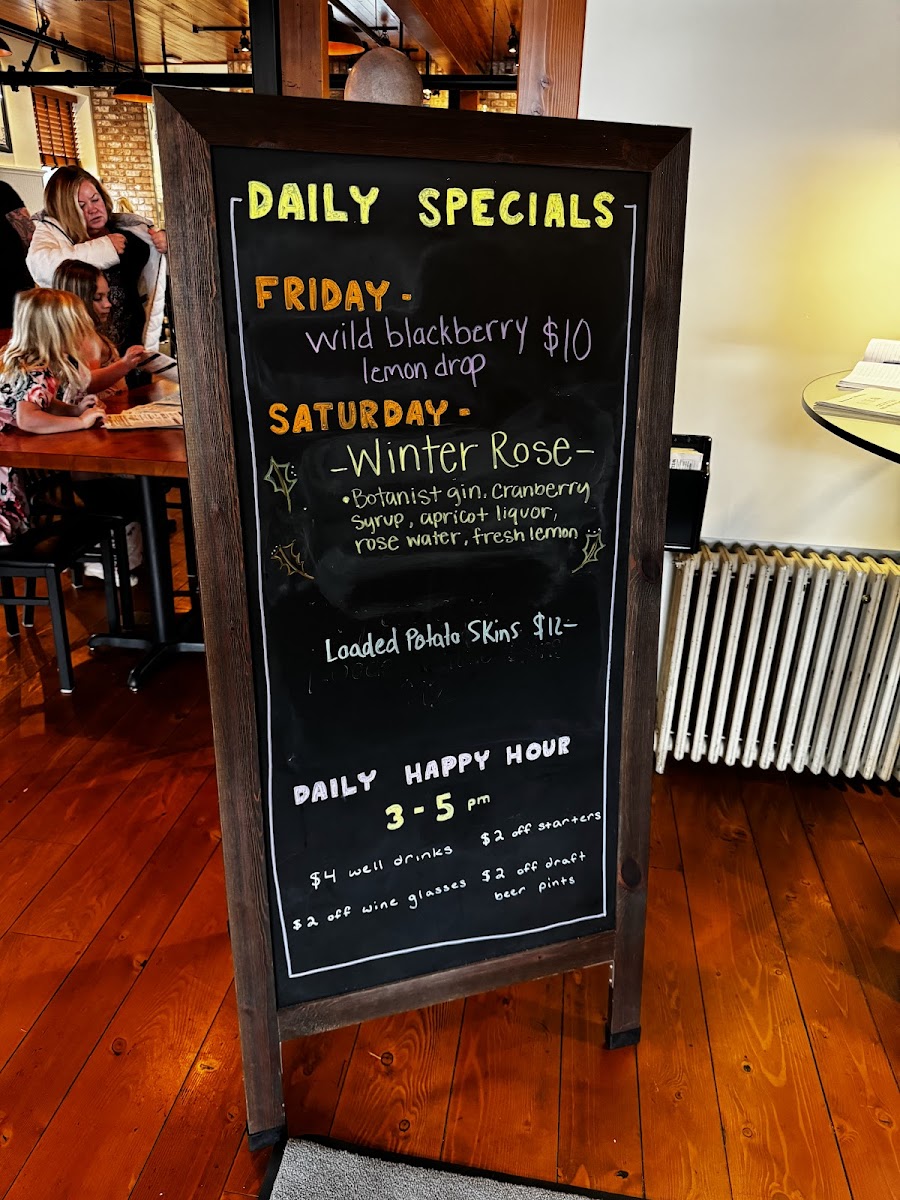 DAILY SPECIALS
FRIDAY -
wild blackberry $10
lemon drop
SATURDAY -
-Winter Rose-
•Botanist gin, cranberry
syrup, apricot liquor,
rose water, fresh lemon
Loaded Potato Skins $12-
DAILY HAPPY HOUR
3-5 pm
$4 well drinks
$2 off starters
$2 off wine glasses
$2 off draft
beer pints